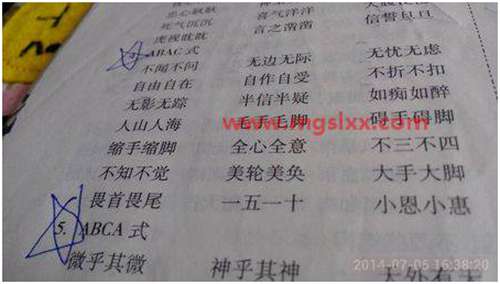 忠心耿耿 喜气洋洋
死气沉沉 言之凿凿 信誓旦旦
虎视眈眈
ABAC 式 无边无际 无忧无虑
不闻不问 自作自受 不折不扣
自由自在 半信半疑 如痴如醉
无影无踪 毛手毛脚 碍手碍脚
www.mgslxx.com
人山人海 全心全意 不三不四
缩手缩脚 美轮美奂 大手大脚
不知不觉 一五一十 小恩小惠
畏首畏尾
5. ABCA 式
微乎其微 神乎其神 天外有天
2014-07-05 16:38:20